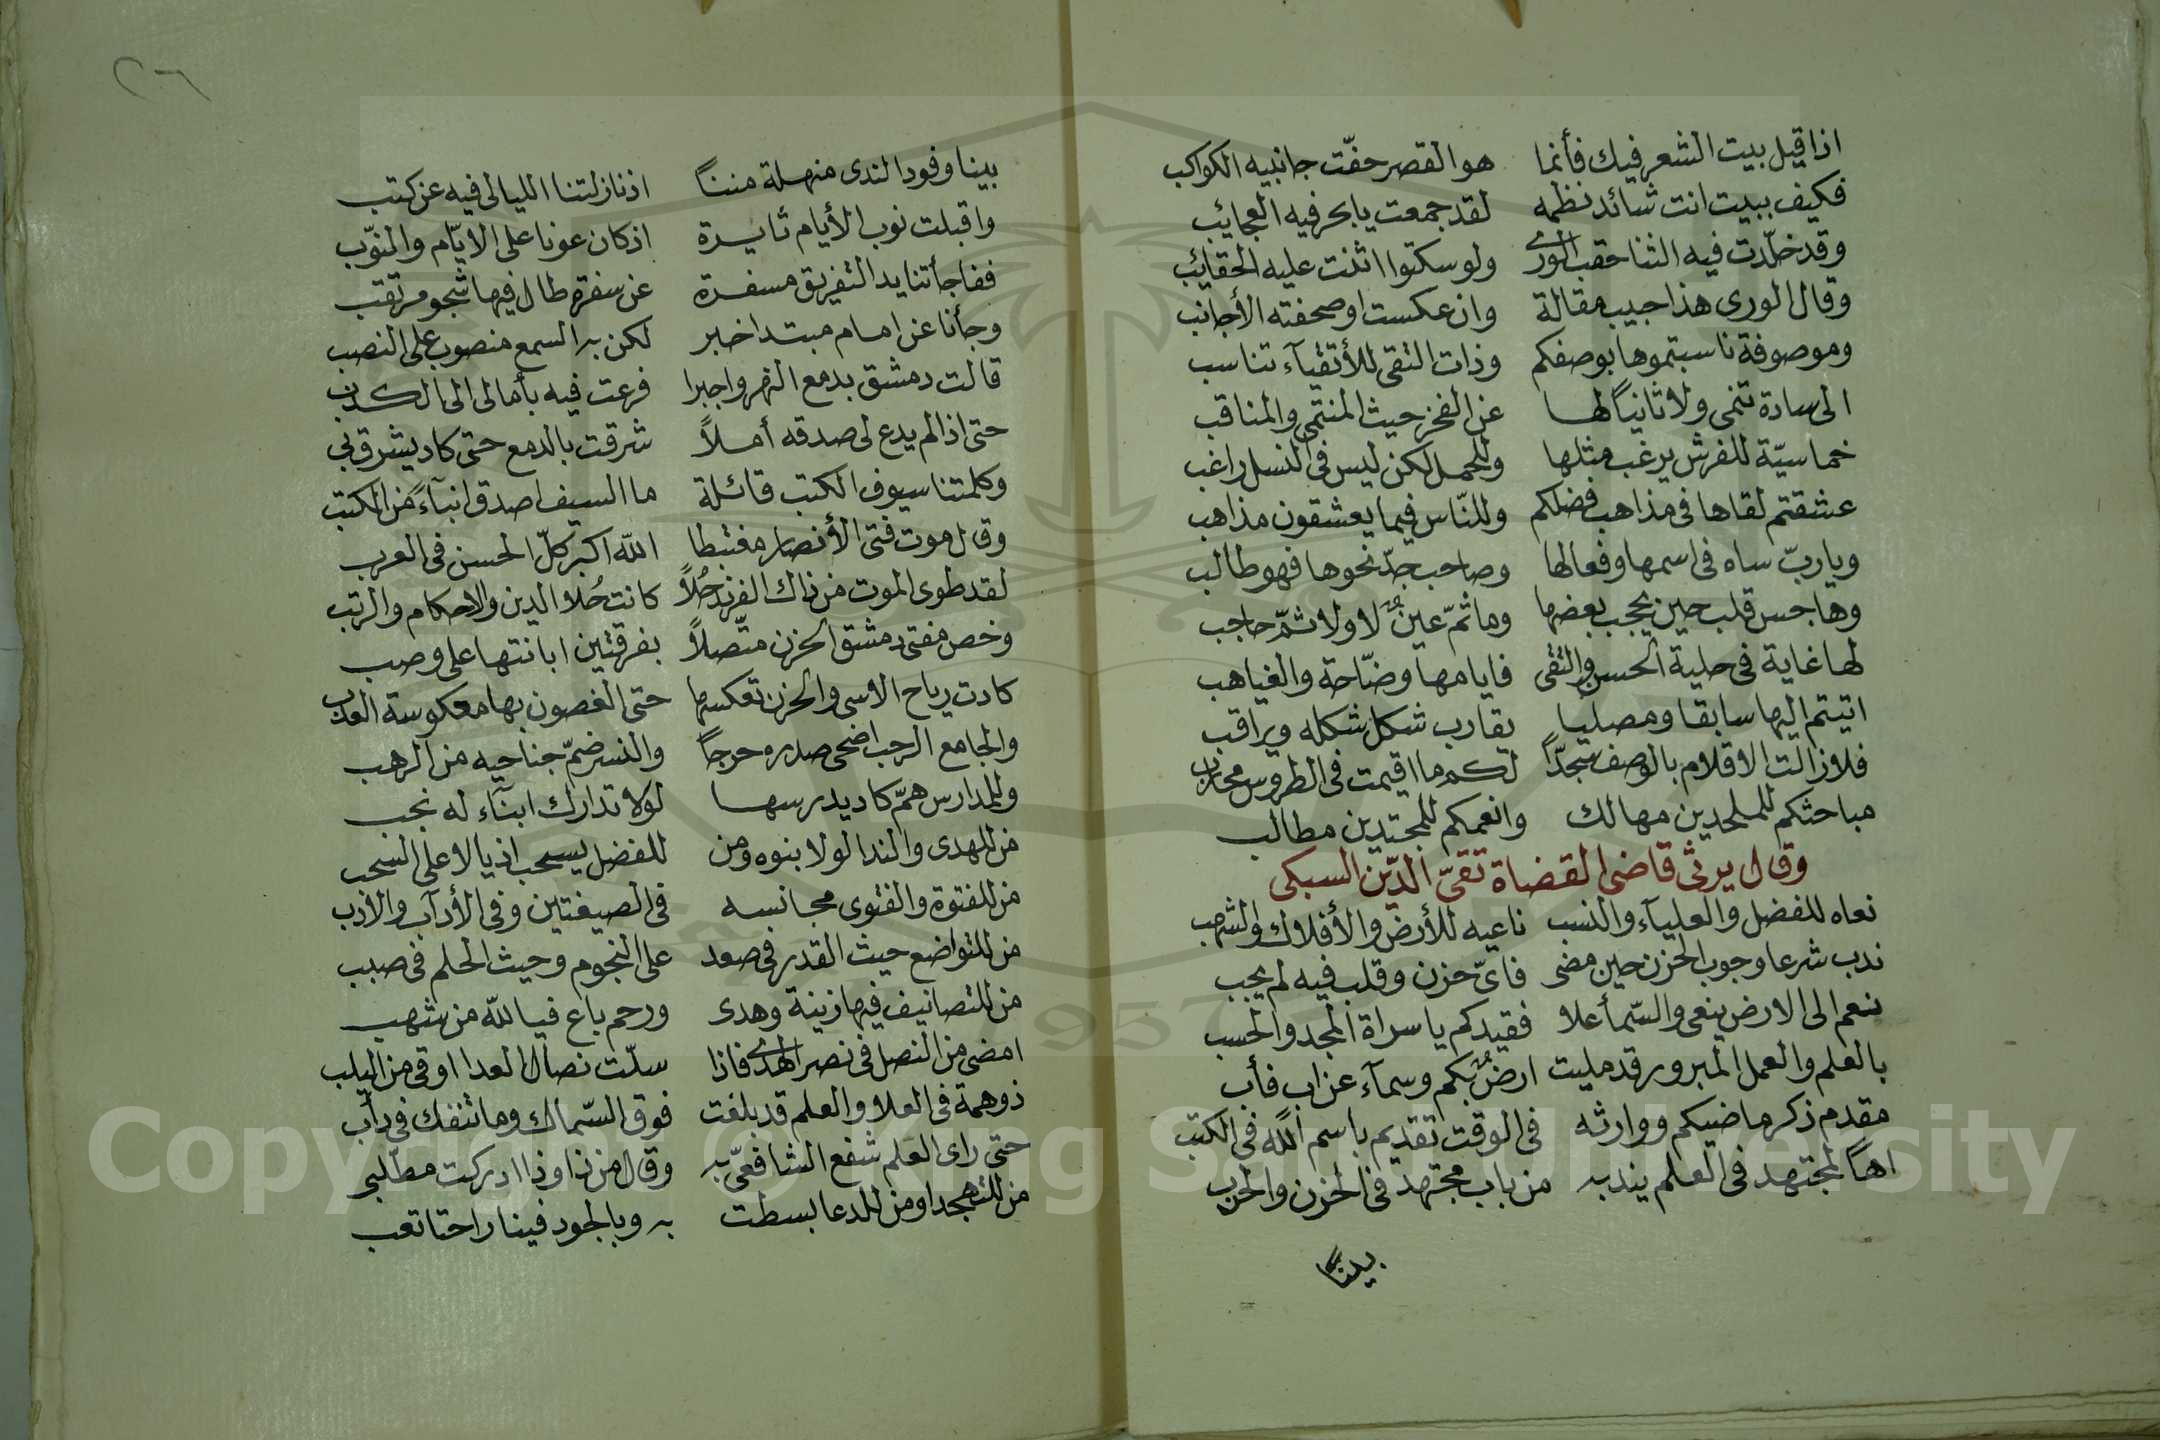 اذا قيل بيت الشعر فيك فأنما هو القصر حفّت جانبيه الكواكب
فكيف ببيت انت شائد نظمه لقد جمعت يا بحر فيه العجايب
وقد خلّدت فيه الثنا حقب الورى ولو سكتوا اثنت عليه الحقايب
وقال الورى هذا حبيب مقالة وان عكست او صحفته الأجانب
وموصوفة ناسبتموها بوصفكم وذات التقى للأتقيآء تناسب
الى سادة تنمى ولا ثانياً لها عن الفخر حيث المنتمى والمناقب
خماسيّة للفرش يرغب مثلها وللحمل لكن ليس فى النسل راغب
عشقتم لقاها فى مذاهب فضلكم وللنّاس فيما يعشقون مذاهب
ويا ربّ ساه فى اسمها وفعالها وصاحب جدّ نحوها فهو طالب
وهاجس قلب حين يحجب بعضها وما ثمّ عينٌ لا ولا ثمّ حاجب
لها غاية فى حلية الحسن والتقى فايامها وضّاحة والغياهب
اتيتم اليها سابقا ومصليا يقارب شكل شكله ويراقب
فلا زالت الاقلام بالوصف سجدّاً لكم ما اقيمت فى الطروس محارب
مباحثكم للملحدين مهالك وانعمكم للمجتدين مطالب
وقال يرثى قاضى القضاة تقىّ الدّين السبكى
نعاه للفضل والعليآء والنسب ناعيه للأرض والأفلاك والشهب
ندب شرعا وجوب الحزن حين مضى فاىّ حزن وقلب فيه لم يجب
نعم الى الارض ينعى والسّمأ علا فقيدكم يا سراة المجد والحسب
بالعلم والعمل المبرور قد مليت ارضٌ بكم وسمآء عن اب فأب
مقدم ذكر ماضيكم ووارثه فى الوقت تقديم بأسم الله فى الكتب
اهاً لمجتهد فى العلم يندبه من باب مجتهد فى الحزن والحرب
بينا
٢٦
بينا وفود الندى منهلة منناً اذ نازلتنا الليالى فيه عن كتب
واقبلت نوب الأيام ثايرة اذ كان عونا على الايّام والنوّب
ففاجأتنا يد التفريق مسفرة عن سفرة طال فيها شجو مرتقب
وجأنا عن امام مبتدا خبر لكن به السمع منصوب على النصب
قالت دمشق بدمع النهر واخبرا فزعت فيه بأمالى الى الكذب
حتى اذا لم يدع لى صدقه أملاً شرقت بالدمع حتى كاد يشرق بي
وكلمتنا سيوف الكتب قائلة ما السيف اصدق انبآءً من الكتب
وقال موت فتى الأنصار مغتبطا الله اكبر كلّ الحسن فى العرب
لقد طوى الموت من ذاك الفرند حُلاً كانت حُلا الدين والاحكام والرتب
وخص مفتى دمشق الحزن متّصلاً بفرقتين ابانتها على وصب
كادت رياح الاسى والحزن تعكسها حتى الغصون بها معكوسة العذب
والجامع الرحب اضحى صدره حرجاً والنسر ضمّ جناحيه من الرهب
وللمدارس همّ كاد يدرسها لولا تدارك ابنآء له نجب
من للهدى والندا لولا بنوه ومن للفضل يسحب اذيالا على السحب
من للفتوة والفتوى مجانسه فى الصيغتين وفى الأدآب والادب
من للتواضع حيث القدر فى صعد على النجوم وحيث الحلم فى صبب
من للتصانيف فيها زينة وهدى ورحم باغ فيا لله من شهب
امضى من النصل فى نصر الهدى فاذا سلّت نصال العدا اوقى من اليلب
ذو همة فى العلا والعلم قد بلغت فوق السّماك وما تنفك فى دأب
حتى راى العَلم شفع الشافعىّ به وقال من ذا وذا ادركت مطّلبى
من للتهجد او من للدعا بسطت به وبالجود فينا راحتا تعب
Copyright © King Saud University
957